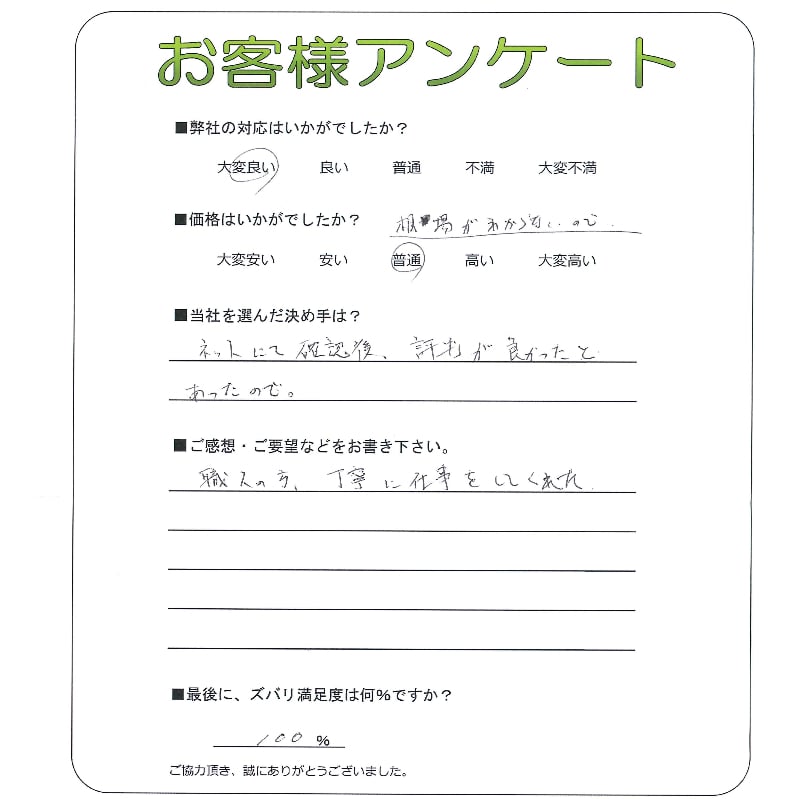 お客様アンケート
■弊社の対応はいかがでしたか?
大変良い 良い 普通 不満 大変不満
■価格はいかがでしたか? 相場がわからないので.
大変安い 安い 普通 高い 大変高い
■当社を選んだ決め手は?
ネットにて確認後、評判が良かったと
あったので。
■ご感想・ご要望などをお書き下さい。
職人の方、丁寧に仕事をしてくれた.
■最後に、ズバリ満足度は何%ですか?
100 %
ご協力頂き、誠にありがとうございました。